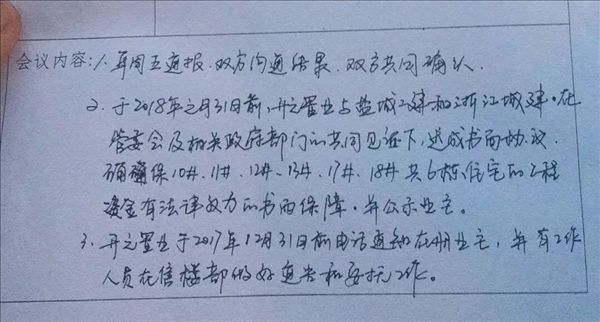 会议内容:1. 每周五通报.双方沟通结果.双方共同确认.
2. 于2018年元月31日前,开元置业与盐城二建和浙江城建.在
管委会及相关政府部门的共同见证下,达成书面协议.
确保10#.11#.12#.13#.17#.18#共6栋住宅的工程
资金有法律效力的书面保障.并公示业主。
3. 开元置业于2017年12月31日前电话通知在册业主,并有工作
人员在售楼部做好通告和安抚工作。